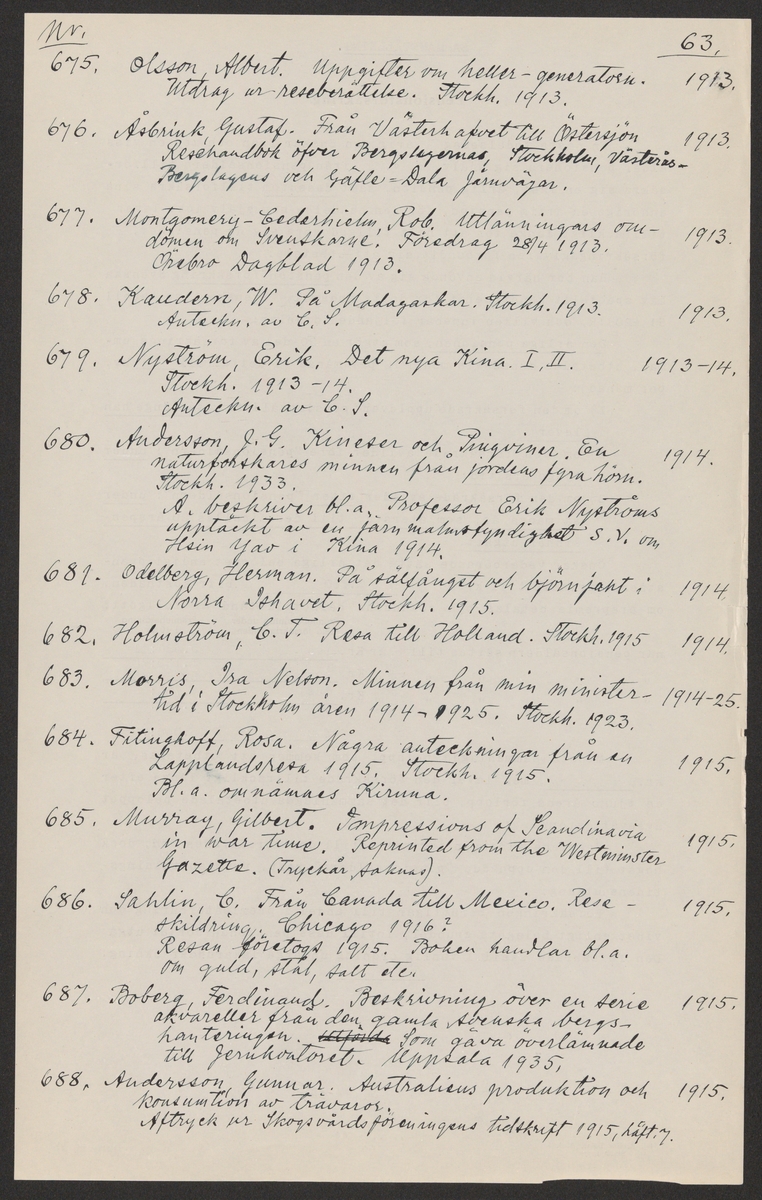 Nr.
63.
675. Olsson, Albert. Uppgifter om heller-generatorn. 1913.
Utdrag ur reseberättelse. Stockh. 1913.
676. Åsbrink, Gustaf. Från Västerhafvet till Östersjön 1913.
Resehandbok öfver Bergslagernas, Stockholm, Västerås-
Bergslagens och Gäfle=Dala Järnvägar.
677. Montgomery-Cederhielm, Rob. Utlänningars om- 1913.
dömen om Svenskarne. Föredrag 28/4 1913.
Örebro Dagblad 1913.
678. Kaudern, W. På Madagaskar. Stockh. 1913. 1913.
Anteckn. av C. S.
679. Nyström, Erik. Det nya Kina. I, II. 1913-14.
Stockh. 1913-14.
Anteckn. av C. S.
680. Andersson, J. G. Kineser och Pingviner. En 1914.
naturforskares minnen från jordens fyra hörn.
Stockh. 1933.
A. beskriver bl.a. Professor Erik Nyströms
upptäckt av en järnmalmsfyndighet S.V. om
Hsin Yao i Kina 1914.
681. Odelberg, Herman. På sälfångst och björnjakt i 1914.
Norra Ishavet. Stockh. 1915.
682. Holmström, C. T. Resa till Holland. Stockh. 1915 1914.
683. Morris, Ira Nelson. Minnen från min minister- 1914-25.
tid i Stockholm åren 1914-1925. Stockh. 1923.
684. Fitinghoff, Rosa. Några anteckningar från en 1915.
Lapplandsresa 1915. Stockh. 1915.
Bl. a. omnämnes Kiruna.
685. Murray, Gilbert. Impressions of Scandinavia 1915.
in war time. Reprinted from the Westminster
Gazette. (Tryckår saknas).
686. Sahlin, C. Från Canada till Mexico. Rese- 1915.
skildring. Chicago 1916?
Resan företogs 1915. Boken handlar bl.a.
om guld, stål, salt etc.
687. Boberg, Ferdinand. Beskrivning över en serie 1915.
akvareller från den gamla svenska bergs-
hanteringen. Som gåva överlämnade
till Jernkontoret. Uppsala 1935.
688. Andersson, Gunnar. Australiens produktion och 1915.
konsumtion av trävaror.
Aftryck ur Skogsvårdsföreningens tidskrift 1915, häft. 7.